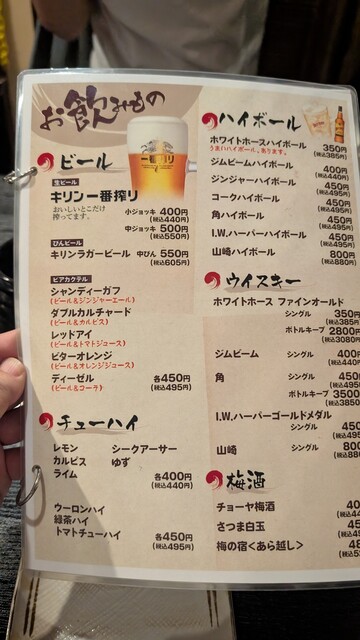 お飲みもの
ビール
生ビール
キリン一番搾り
おいしいとこだけ
搾ってます。
小ジョッキ 400円
(税込440円)
中ジョッキ 500円
(税込550円)
びんビール
キリンラガービール 中びん 550円
(税込605円)
ビアカクテル
シャンディーガフ
(ビール&ジンジャーエール)
ダブルカルチャード
(ビール&カルピス)
レッドアイ
(ビール&トマトジュース)
ビターオレンジ
(ビール&オレンジジュース)
ディーゼル 各450円
(ビール&コーラ) (税込495円)
チューハイ
レモン シークアーサー
カルピス ゆず
ライム 各400円
(税込440円)
ウーロンハイ
緑茶ハイ
トマトチューハイ 各450円
(税込495円)
ハイボール
ホワイトホースハイボール 350円
うまハイボール、あります。 (税込385円)
ジムビームハイボール 400円
(税込440円)
ジンジャーハイボール 450円
(税込495円)
コークハイボール 450円
(税込495円)
角ハイボール 450円
(税込495円)
I.W.ハーパーハイボール 450円
(税込495円)
山崎ハイボール 800円
(税込880円)
ウイスキー
ホワイトホース ファインオールド
シングル 350円
(税込385円
ボトルキープ 2800円
(税込3080円
ジムビーム シングル 400円
(税込440
角 シングル 450円
(税込495
ボトルキープ 3500
(税込3850
I.W.ハーパーゴールドメダル
シングル 450
(税込495
山崎 シングル 800
(税込880
梅酒
チョーヤ梅酒 40
(税込44
さつま白玉 45
(税込49
梅の宿<あら越し> 48
(税込52